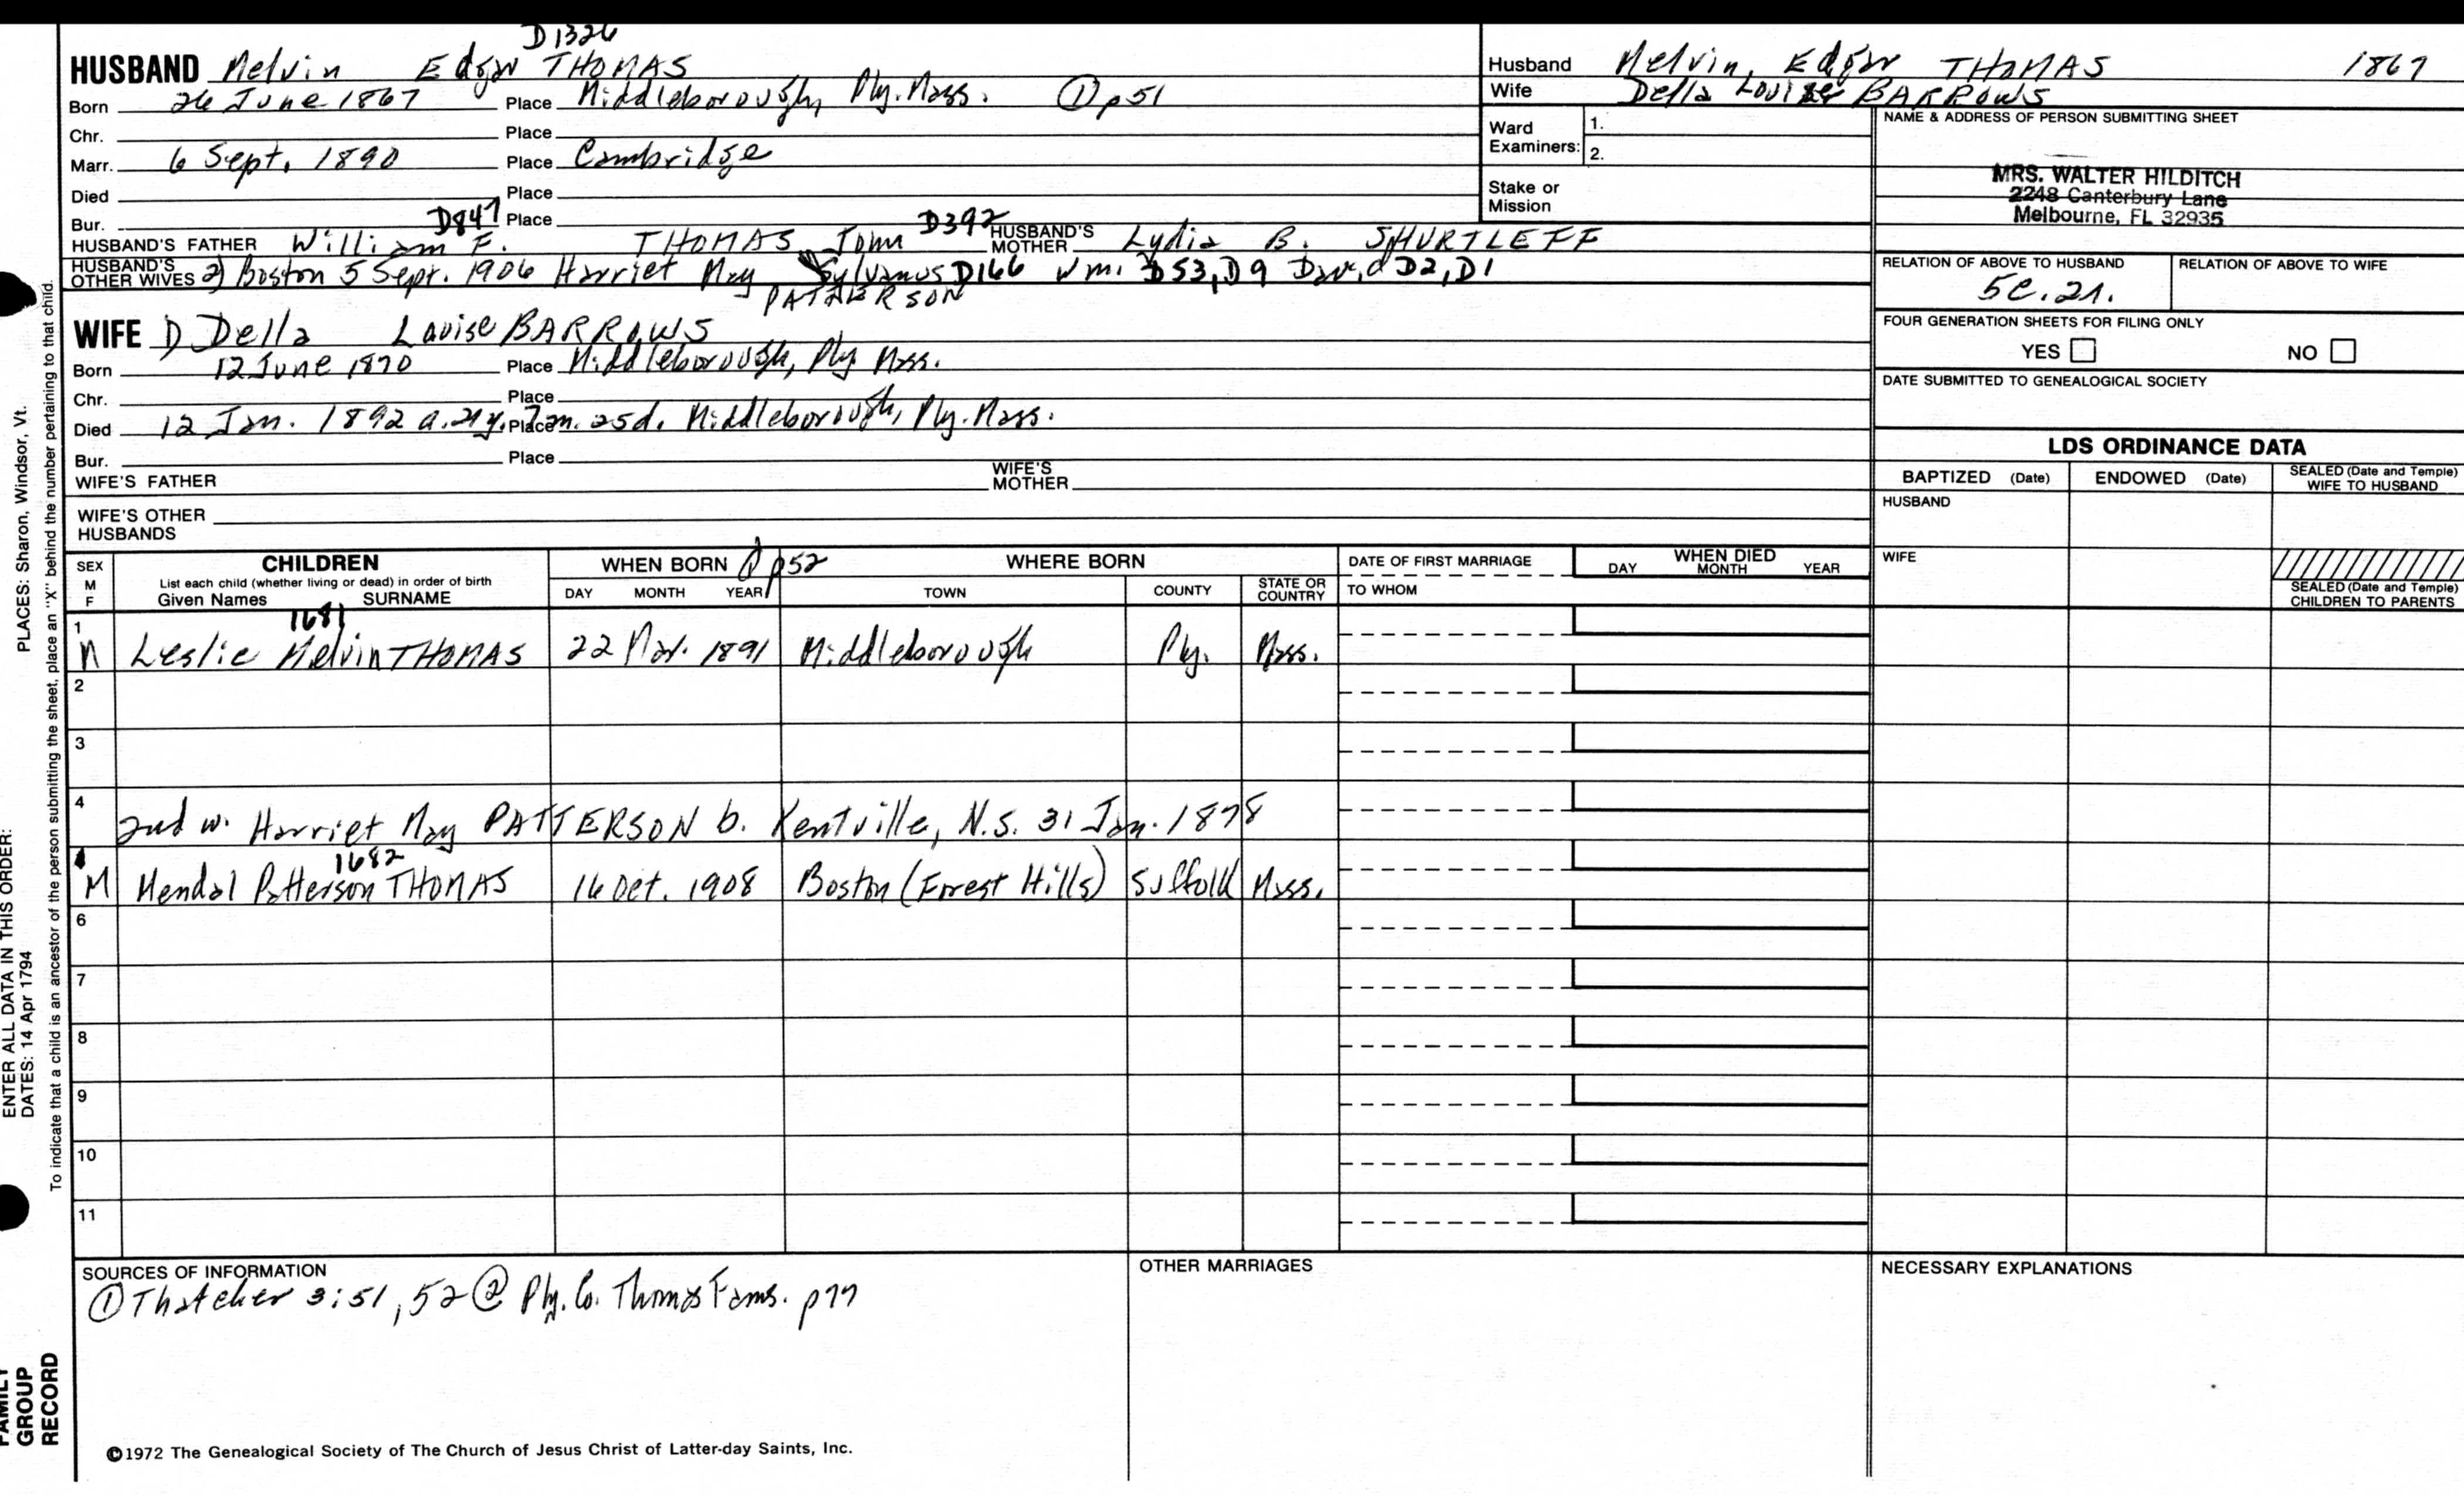 D1326
HUSBAND Melvin Edgar THOMAS
Born 26 June 1867 Place Middleborough, Ply. Mass. ① p51
Chr. Place
Marr. 6 Sept. 1890 Place Cambridge
Died Place
Bur. D847 Place D392
HUSBAND'S FATHER William F. THOMAS, John HUSBAND'S MOTHER Lydia B. SHURTLEFF
HUSBAND'S OTHER WIVES 2) Boston 5 Sept. 1906 Harriet May Sylvanus D166 Wm. D53, D9 David D2, D1
PATTERSON
WIFE D Della Louise BARROWS
Born 12 June 1870 Place Middleborough, Ply Mass.
Chr. Place
Died 12 Jan. 1892 a. 21y. 7m. 25d. Place Middleborough, Ply. Mass.
Bur. Place
WIFE'S FATHER WIFE'S MOTHER
WIFE'S OTHER HUSBANDS
Husband Melvin, Edgar THOMAS 1867
Wife Della Louise BARROWS
Ward Examiners: 1.
2.
Stake or Mission
NAME & ADDRESS OF PERSON SUBMITTING SHEET
MRS. WALTER HILDITCH
2248 Canterbury Lane
Melbourne, FL 32935
RELATION OF ABOVE TO HUSBAND RELATION OF ABOVE TO WIFE
5c.2r.
FOUR GENERATION SHEETS FOR FILING ONLY
YES NO
DATE SUBMITTED TO GENEALOGICAL SOCIETY
LDS ORDINANCE DATA
BAPTIZED (Date) ENDOWED (Date) SEALED (Date and Temple) WIFE TO HUSBAND
HUSBAND
WIFE
SEALED (Date and Temple) CHILDREN TO PARENTS
SEX M F CHILDREN WHEN BORN ① p52 WHERE BORN DATE OF FIRST MARRIAGE WHEN DIED
List each child (whether living or dead) in order of birth
Given Names SURNAME DAY MONTH YEAR TOWN COUNTY STATE OR COUNTRY TO WHOM DAY MONTH YEAR
1681
1 M Leslie Melvin THOMAS 22 Mar. 1891 Middleborough Ply. Mass.
2
3
4 2nd w. Harriet May PATTERSON b. Kentville, N.S. 31 Jan. 1878
1682
M Mendal Patterson THOMAS 16 Oct. 1908 Boston (Forest Hills) Suffolk Mass.
6
7
8
9
10
11
SOURCES OF INFORMATION
① Thatcher 3:51, 52 ② Ply. Co. Thomas Fams. p77
OTHER MARRIAGES
NECESSARY EXPLANATIONS
©1972 The Genealogical Society of The Church of Jesus Christ of Latter-day Saints, Inc.
PLACES: Sharon, Windsor, Vt.
ENTER ALL DATA IN THIS ORDER:
DATES: 14 Apr 1794
To indicate that a child is an ancestor of the person submitting the sheet, place an "X" behind the number pertaining to that child.
FAMILY
GROUP
RECORD